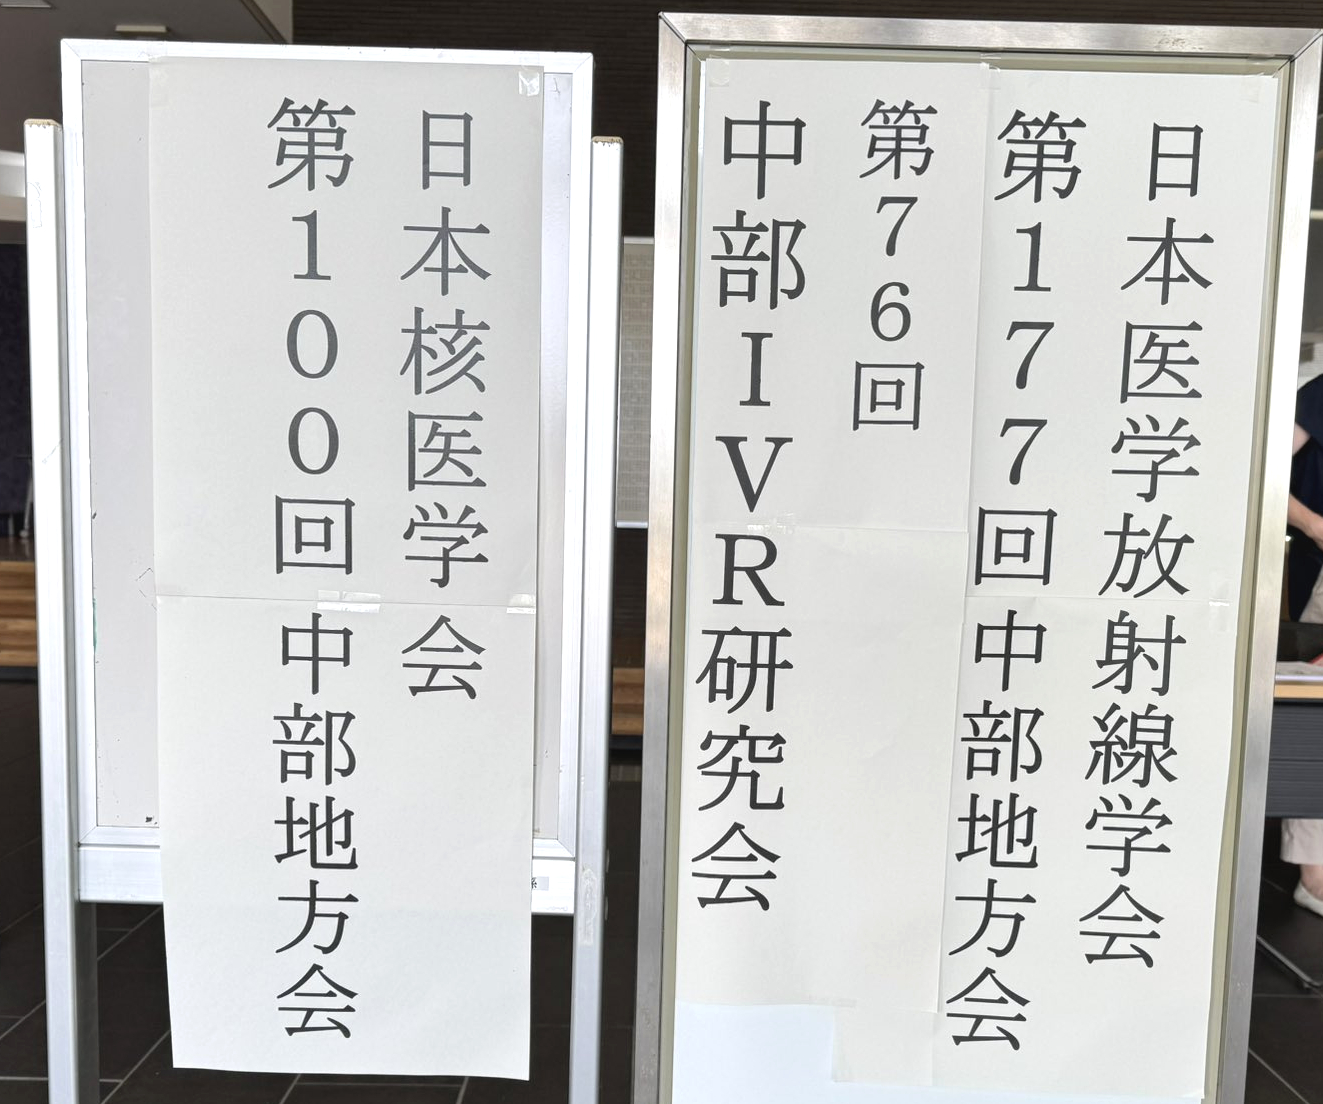 日本医学放射線学会
第177回中部地方会
第76回
中部IVR研究会
日本核医学会
第100回中部地方会